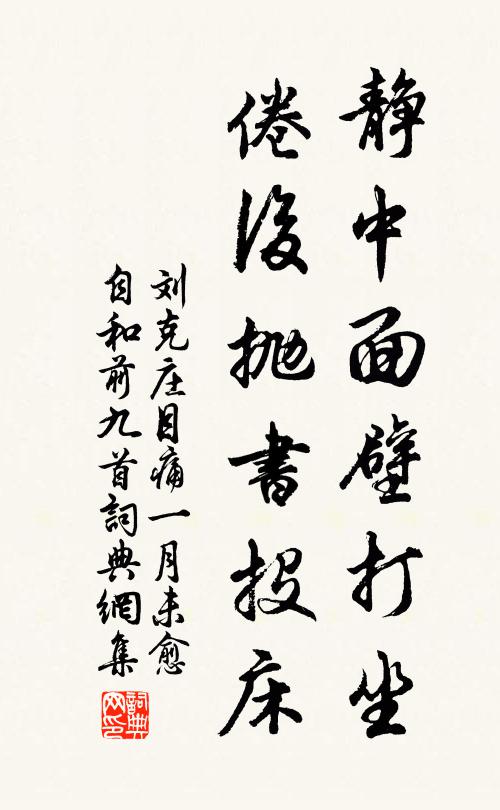 静中面壁打坐
倦後抛書投床
刘克庄目痛一月未愈
自和前九首詞典網集
詞典
网印